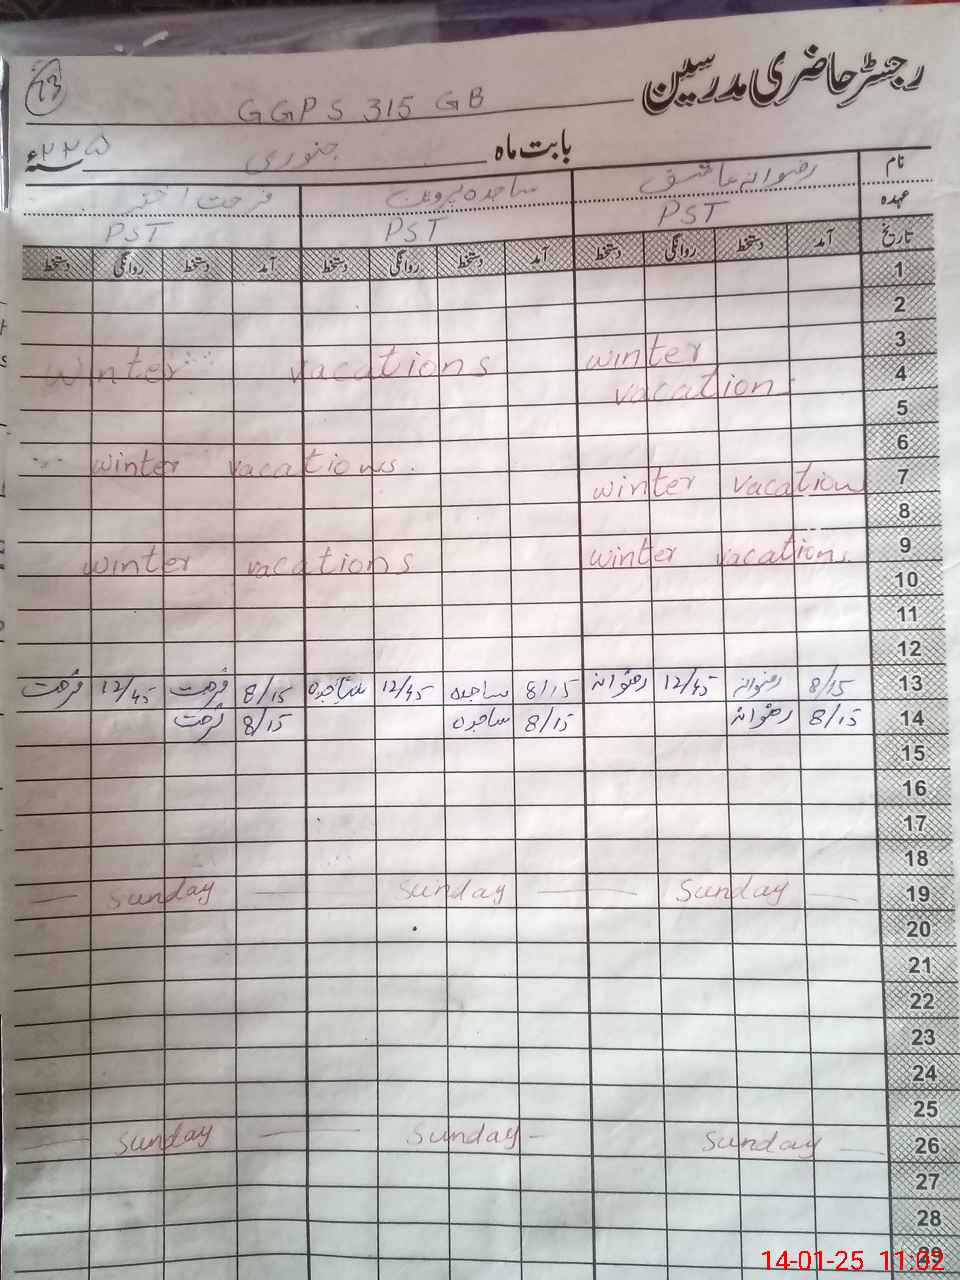 13
رجسٹر حاضری مدرسین
GGPS 315 GB
بابت ماہ جنوری ۲۰۲۵ سنہء
نام رضوانہ عاشق ساجدہ پروین فرحت اختر
عہدہ PST PST PST
تاریخ آمد دستخط روانگی دستخط آمد دستخط روانگی دستخط آمد دستخط روانگی دستخط
1
2
3
winter winter vacations
4
vacations
5
6
winter vacations.
7
winter vacation
8
9
winter vacations winter vacations
10
11
12
13 8/15 رضوانہ 12/45 رضوانہ 8/15 ساجدہ 12/45 ساجدہ 8/15 فرحت 12/45 فرحت
14 8/15 رضوانہ 8/15 ساجدہ 8/15 فرحت
15
16
17
18
19 Sunday Sunday Sunday
20
21
22
23
24
25
26 Sunday Sunday Sunday
27
28
29
14-01-25 11:02